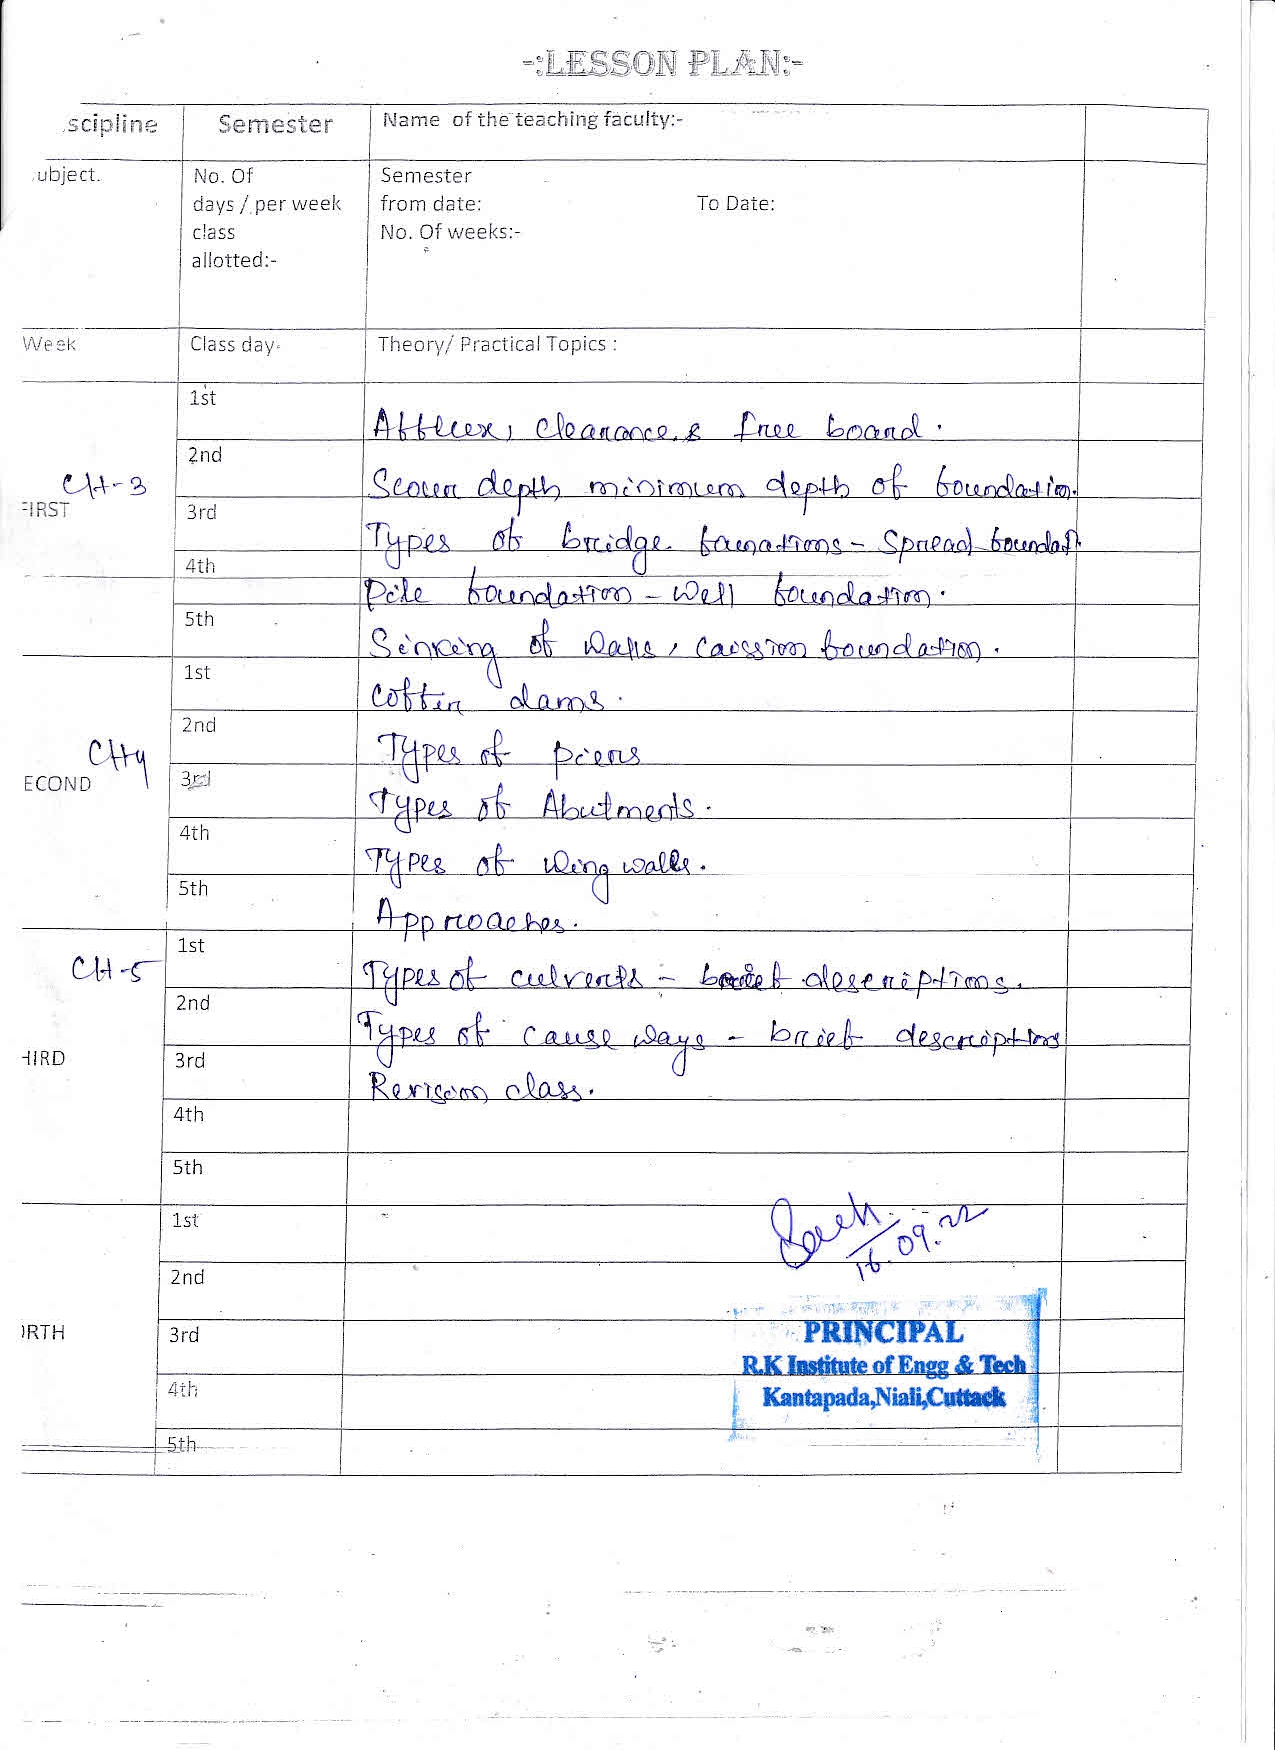 -:LESSON PLAN:-
scipline Semester Name of the teaching faculty:-
ubject. No. Of Semester
days / per week from date: To Date:
class No. Of weeks:-
allotted:-
Week Class day Theory/ Practical Topics :
1st
Afflux, clearance & free board.
2nd
CH-3 Scour depth minimum depth of foundation.
FIRST 3rd
Types of bridge founations - Spread foundat
4th
Pile foundation - Well foundation.
5th
Sinking of wells, caission foundation.
1st
Coffin dams.
2nd
CH4 Types of piers
ECOND 3rd
Types of Abutments.
4th
Types of wing walls.
5th
Approaches.
1st
CH-5 Types of culverts - brief descriptions.
2nd
Types of cause ways - brief description
HIRD 3rd
Revision class.
4th
5th
1st
16.09.22
2nd
PRINCIPAL
RTH 3rd
R.K Institute of Engg & Tech
4th Kantapada,Niali,Cuttack
5th